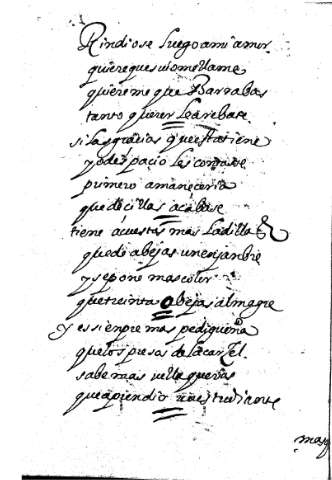 Rindiose luego a mi amor
quiere que su ome llame
quiereme que Barrabas
tanto querer le arebase
si las gracias que esta tiene
y de espacio les contase
primero amaneceria
que decillas acabase
tiene acuestas mas ladillas
que de abejas un enjanbre
y se pone mas color
que treinta obejas almagre
y es sienpre mas pedigueña
que los presos de la carzel
sabe mas
que aprendio
mas